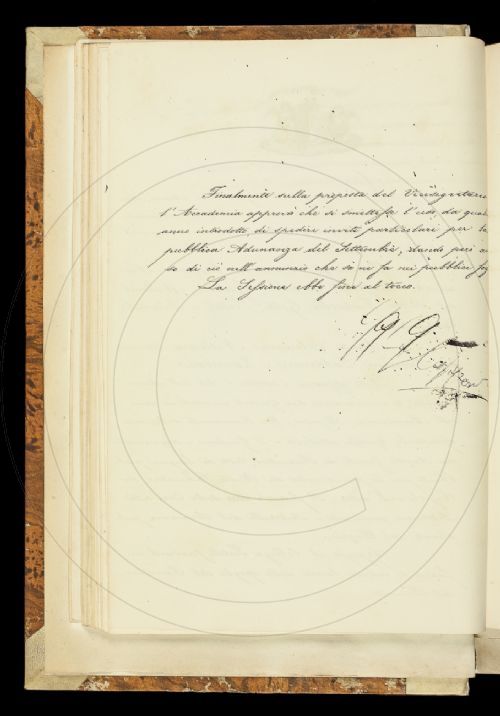 Finalmente sulla proposta del Vicesegretario
l'Accademia approva che si smettesse l'uso, da qual
anno introdotto, di spedire inviti particolari per la
pubblica Adunanza del Settembre, dando però av
so di ciò nell'annunzio che se ne fa nei pubblici fog
La Sessione ebbe fine al tocco.